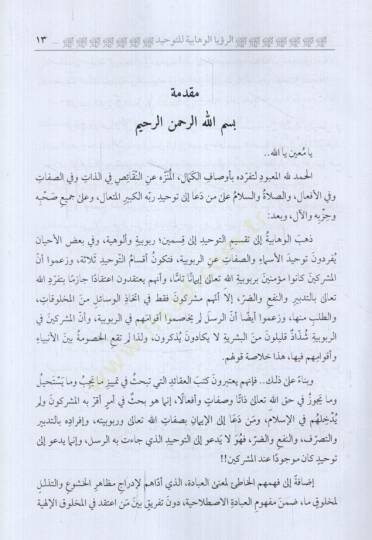 الرؤيا الوهابية للتوحيد ١٣
مقدمة
بسم الله الرحمن الرحيم
يا مُعين يا الله..
الحمد لله المعبودِ لتفرّده بأوصافِ الكمَال، المُنَزّه عنِ النّقائِصِ في الذاتِ وفي الصفاتِ
وفي الأفعال، والصلاةُ والسلامُ على من دَعَا إلى توحيدِ ربّه الكبيرِ المتعال، وعلى جميعِ صَحْبِه
وحِزبِه والآل، وبعد:
ذهبَ الوهابيةُ إلى تقسيمِ التوحيدِ إلى قِسمينِ؛ ربوبيةٍ وألوهية، وفي بعضِ الأحيان
يُفرِدونَ توحيدَ الأسماءِ والصفاتِ عن الربوبية، فتكونُ أقسامُ التّوحيدِ ثلاثة، وزعموا أنّ
المشركينَ كانوا مؤمنينَ بربوبيةِ الله تعالى إيمانًا تامًّا، وأنهم يعتقدون اعتقادًا جازمًا بتفرّدِ الله
تعالى بالتدبيرِ والنفعِ والضرّ، إلا أنّهم مشركونَ فقط في اتخاذِ الوسائلِ منَ المخلوقات،
والطلبِ منها، وزعموا أيضًا أنّ الرسلَ لم يخاصموا أقوامَهم في الربوبية، وأنّ المشركينَ في
الربوبيةِ شُذّاذٌ قليلونَ منَ البشريةِ لا يكادونَ يُذكرون، ولذا لم تقعِ الخصومةُ بينَ الأنبياءِ
وأقوامِهم فيها، هذا خلاصة قولهم.
وبناءً على ذلك.. فإنهم يعتبرونَ كتبَ العقائدِ التي تبحثُ في تمييزِ ما يجبُ وما يَستحيلُ
وما يجوزُ في حقّ الله تعالى ذاتًا وصفاتٍ وأفعالًا، إنما هو بحثٌ في أمرٍ أقرّ به المشركونَ ولم
يُدْخِلْهم في الإسلام، ومَن دَعَا إلى الإيمانِ بصفاتِ الله تعالى وربوبيته، وإفرادِه بالتدبيرِ
والتصرّف، والنفعِ والضرّ، فهُوَ لا يَدعو إلى التوحيدِ الذي جاءت به الرسل، وإنما يدعو إلى
توحيدٍ كان موجودًا عند المشركين!!
إضافةً إلى فهمِهم الخاطئِ لمعنى العبادة، الذي أدّاهم لإدراجِ مظاهرِ الخشوعِ والتذلّلِ
لمخلوقٍ ما، ضمنَ مفهومِ العبادةِ الاصطلاحية، دونَ تفريقٍ بينَ مَن اعتقدَ في المخلوقِ الإلهية